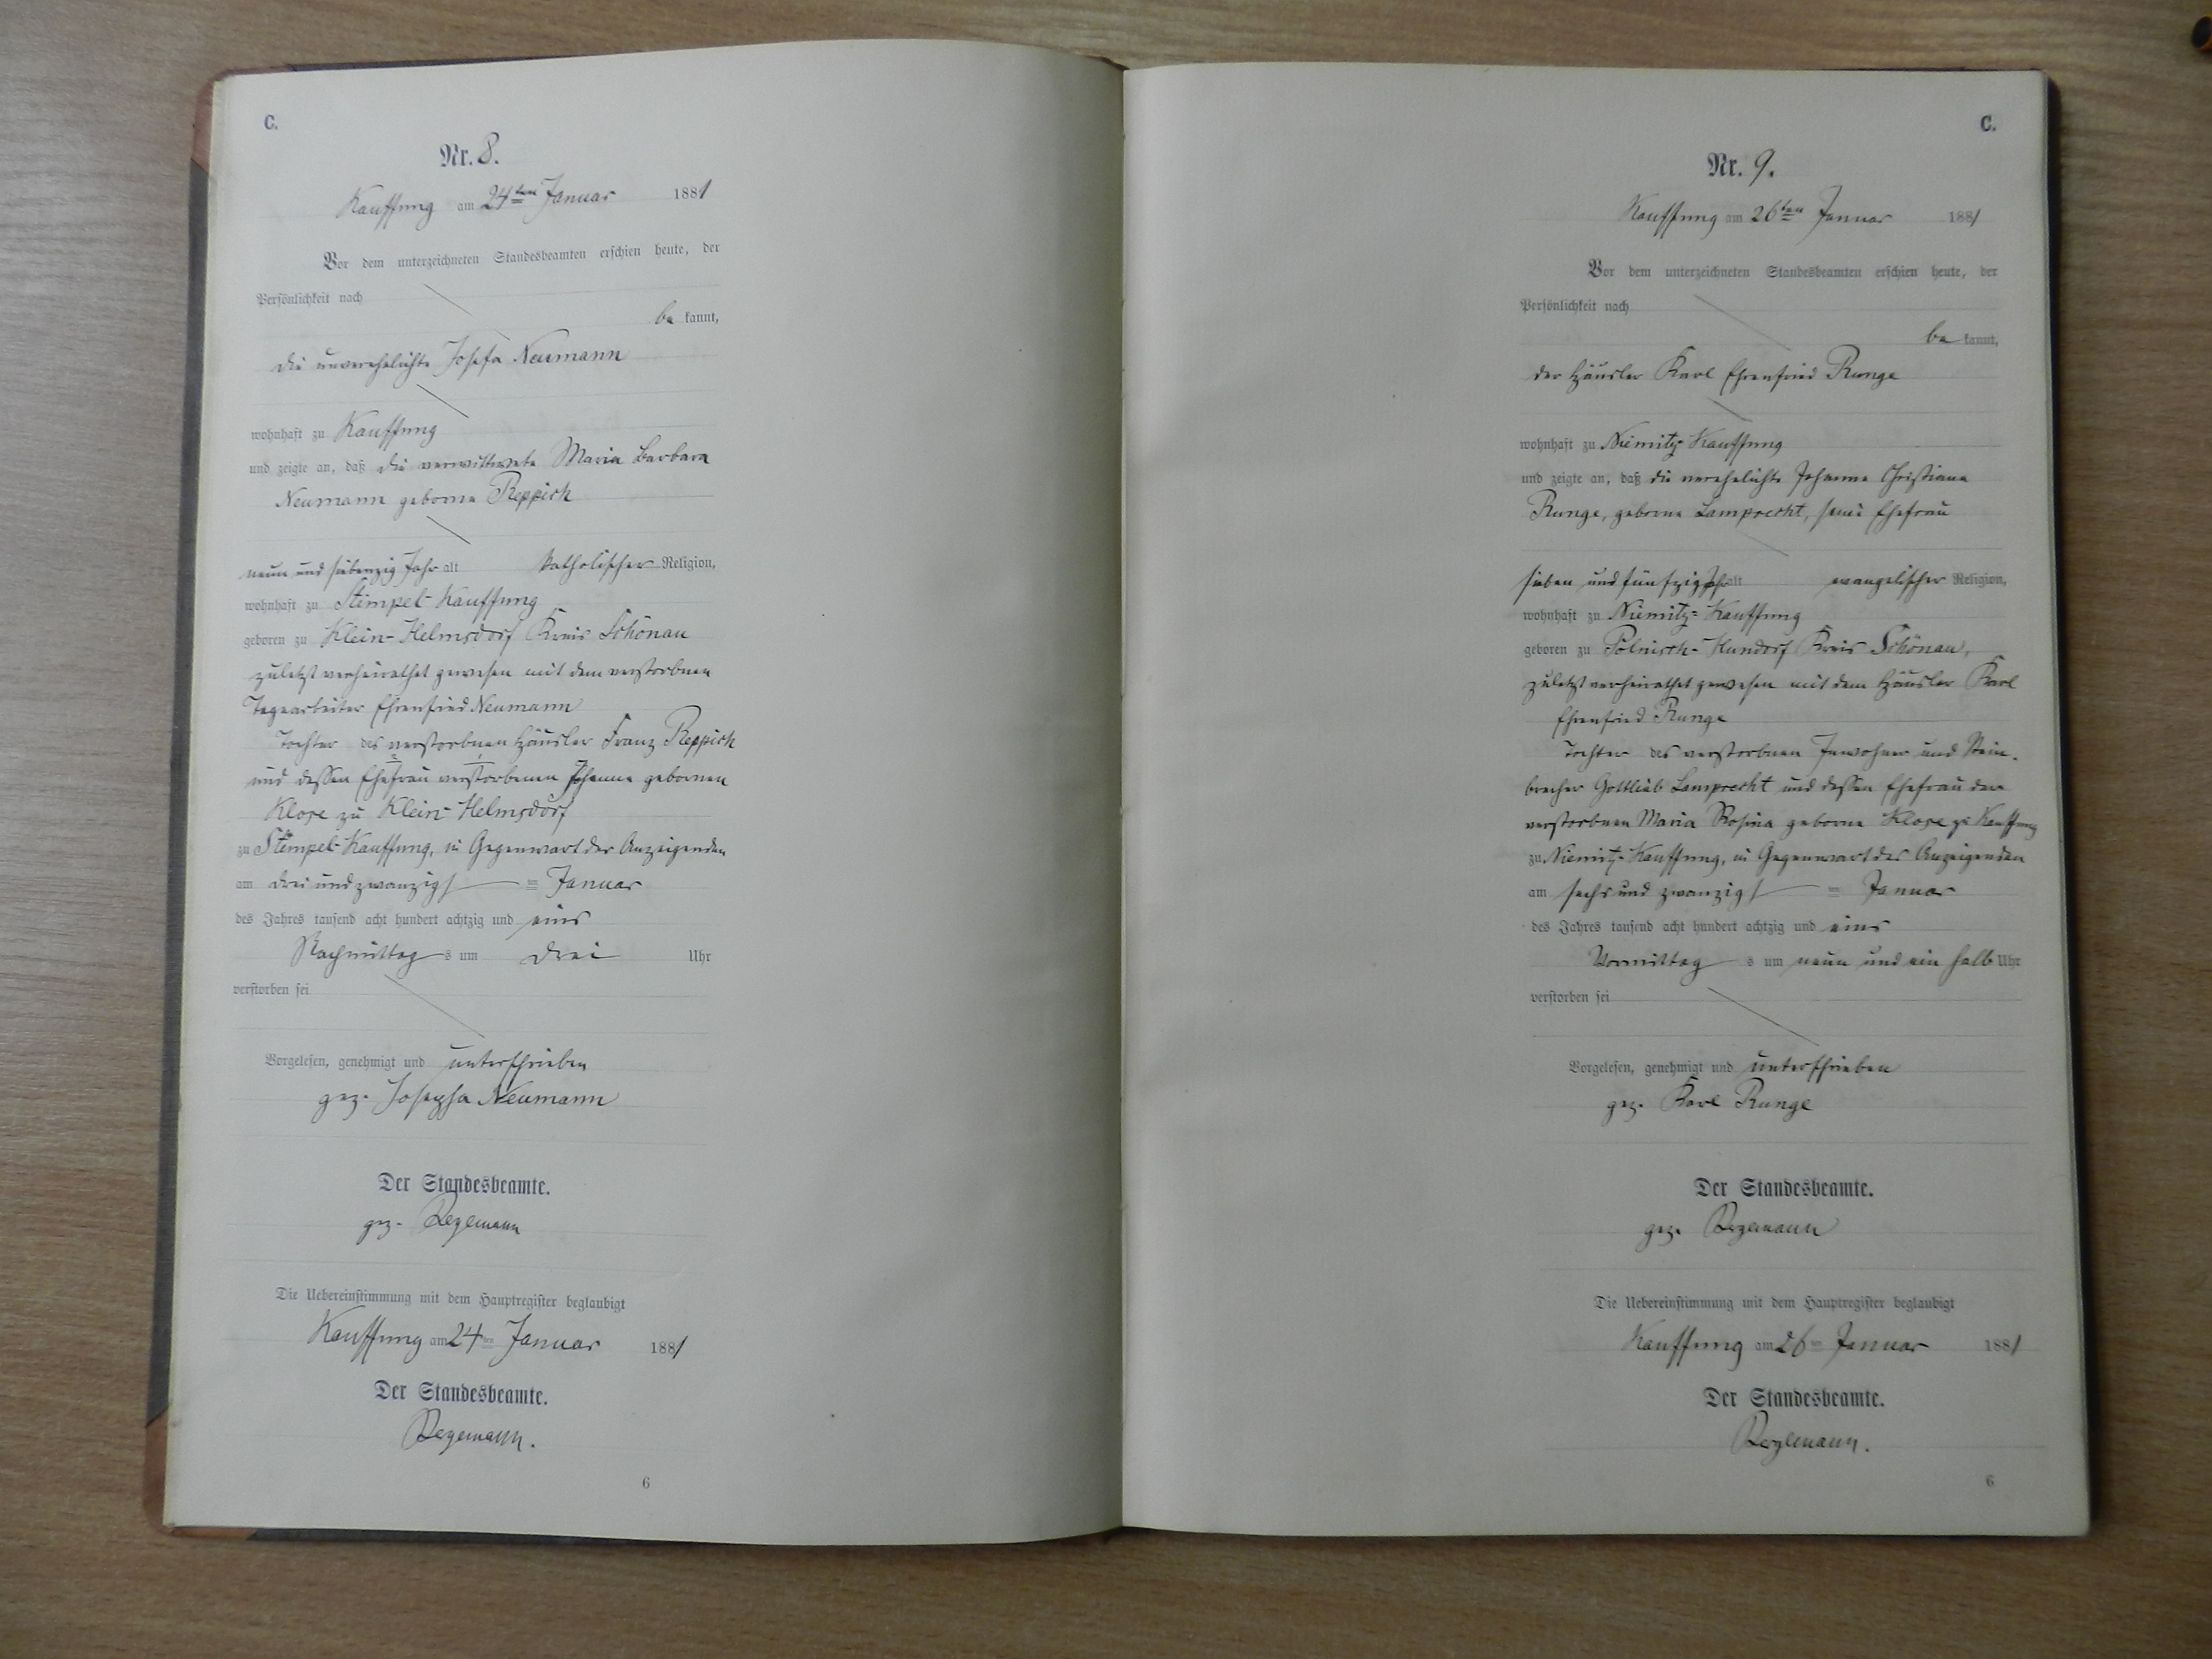 C.
Nr. 8.
Kauffung am 24ten Januar 1881
Vor dem unterzeichneten Standesbeamten erschien heute, der
Persönlichkeit nach
be kannt,
die unverehelichte Josefa Neumann
wohnhaft zu Kauffung
und zeigte an, daß die verwittwete Maria Barbara
Neumann geborne Reppich
neun und siebenzig Jahr alt katholischer Religion,
wohnhaft zu Stimpel-Kauffung
geboren zu Klein-Helmsdorf Kreis Schönau
zuletzt verheirathet gewesen mit dem verstorbnen
Tagearbeiter Ehrenfried Neumann
Tochter des verstorbnen Häusler Franz Reppich
und dessen Ehefrau verstorbenen Johanna gebornen
Klose zu Klein-Helmsdorf
zu Stimpel-Kauffung, in Gegenwart der Anzeigenden
am drei und zwanzigsten Januar
des Jahres tausend acht hundert achtzig und eins
Nachmittag s um drei Uhr
verstorben sei
Vorgelesen, genehmigt und unterschrieben
gez. Josepha Neumann
Der Standesbeamte.
gez.
Die Uebereinstimmung mit dem Hauptregister beglaubigt
Kauffung am 24ten Januar 1881
Der Standesbeamte.
6
C.
Nr. 9.
Kauffung am 26ten Januar 1881
Vor dem unterzeichneten Standesbeamten erschien heute, der
Persönlichkeit nach
be kannt,
der Häusler Karl Ehrenfried Runge
wohnhaft zu Niemitz-Kauffung
und zeigte an, daß die verehelichte Johanne Christiane
Runge, geborne Lamprecht, seine Ehefrau
sieben und fünfzig Jahr alt evangelischer Religion,
wohnhaft zu Niemitz-Kauffung
geboren zu Polnisch-Hundorf Kreis Schönau,
zuletzt verheirathet gewesen mit dem Häusler Karl
Ehrenfried Runge
Tochter des verstorbnen Inwohner und Stein-
brecher Gottlieb Lamprecht und dessen Ehefrau der
verstorbnen Maria Rosina geborne Klose zu Kauffung
zu Niemitz-Kauffung, in Gegenwart des Anzeigenden
am sechs und zwanzigsten Januar
des Jahres tausend acht hundert achtzig und eins
Vormittag s um neun und ein halb Uhr
verstorben sei
Vorgelesen, genehmigt und unterschrieben
gez. Karl Runge
Der Standesbeamte.
gez.
Die Uebereinstimmung mit dem Hauptregister beglaubigt
Kauffung am 26ten Januar 1881
Der Standesbeamte.
6